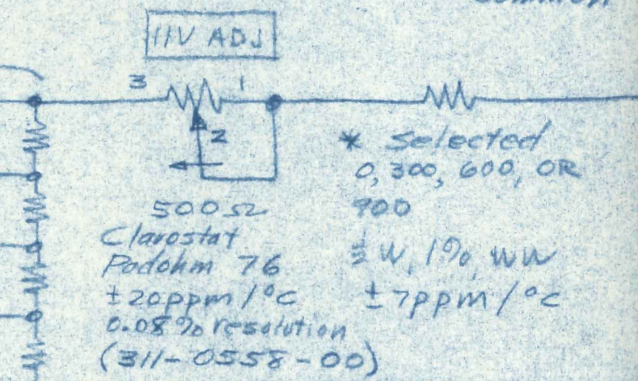 Common
11V ADJ
3
1
2
500Ω
Clarostat
Podohm 76
±20ppm/°C
0.08% resolution
(311-0558-00)
* Selected
0, 300, 600, OR
900
½ W, 1%, WW
±7ppm/°C